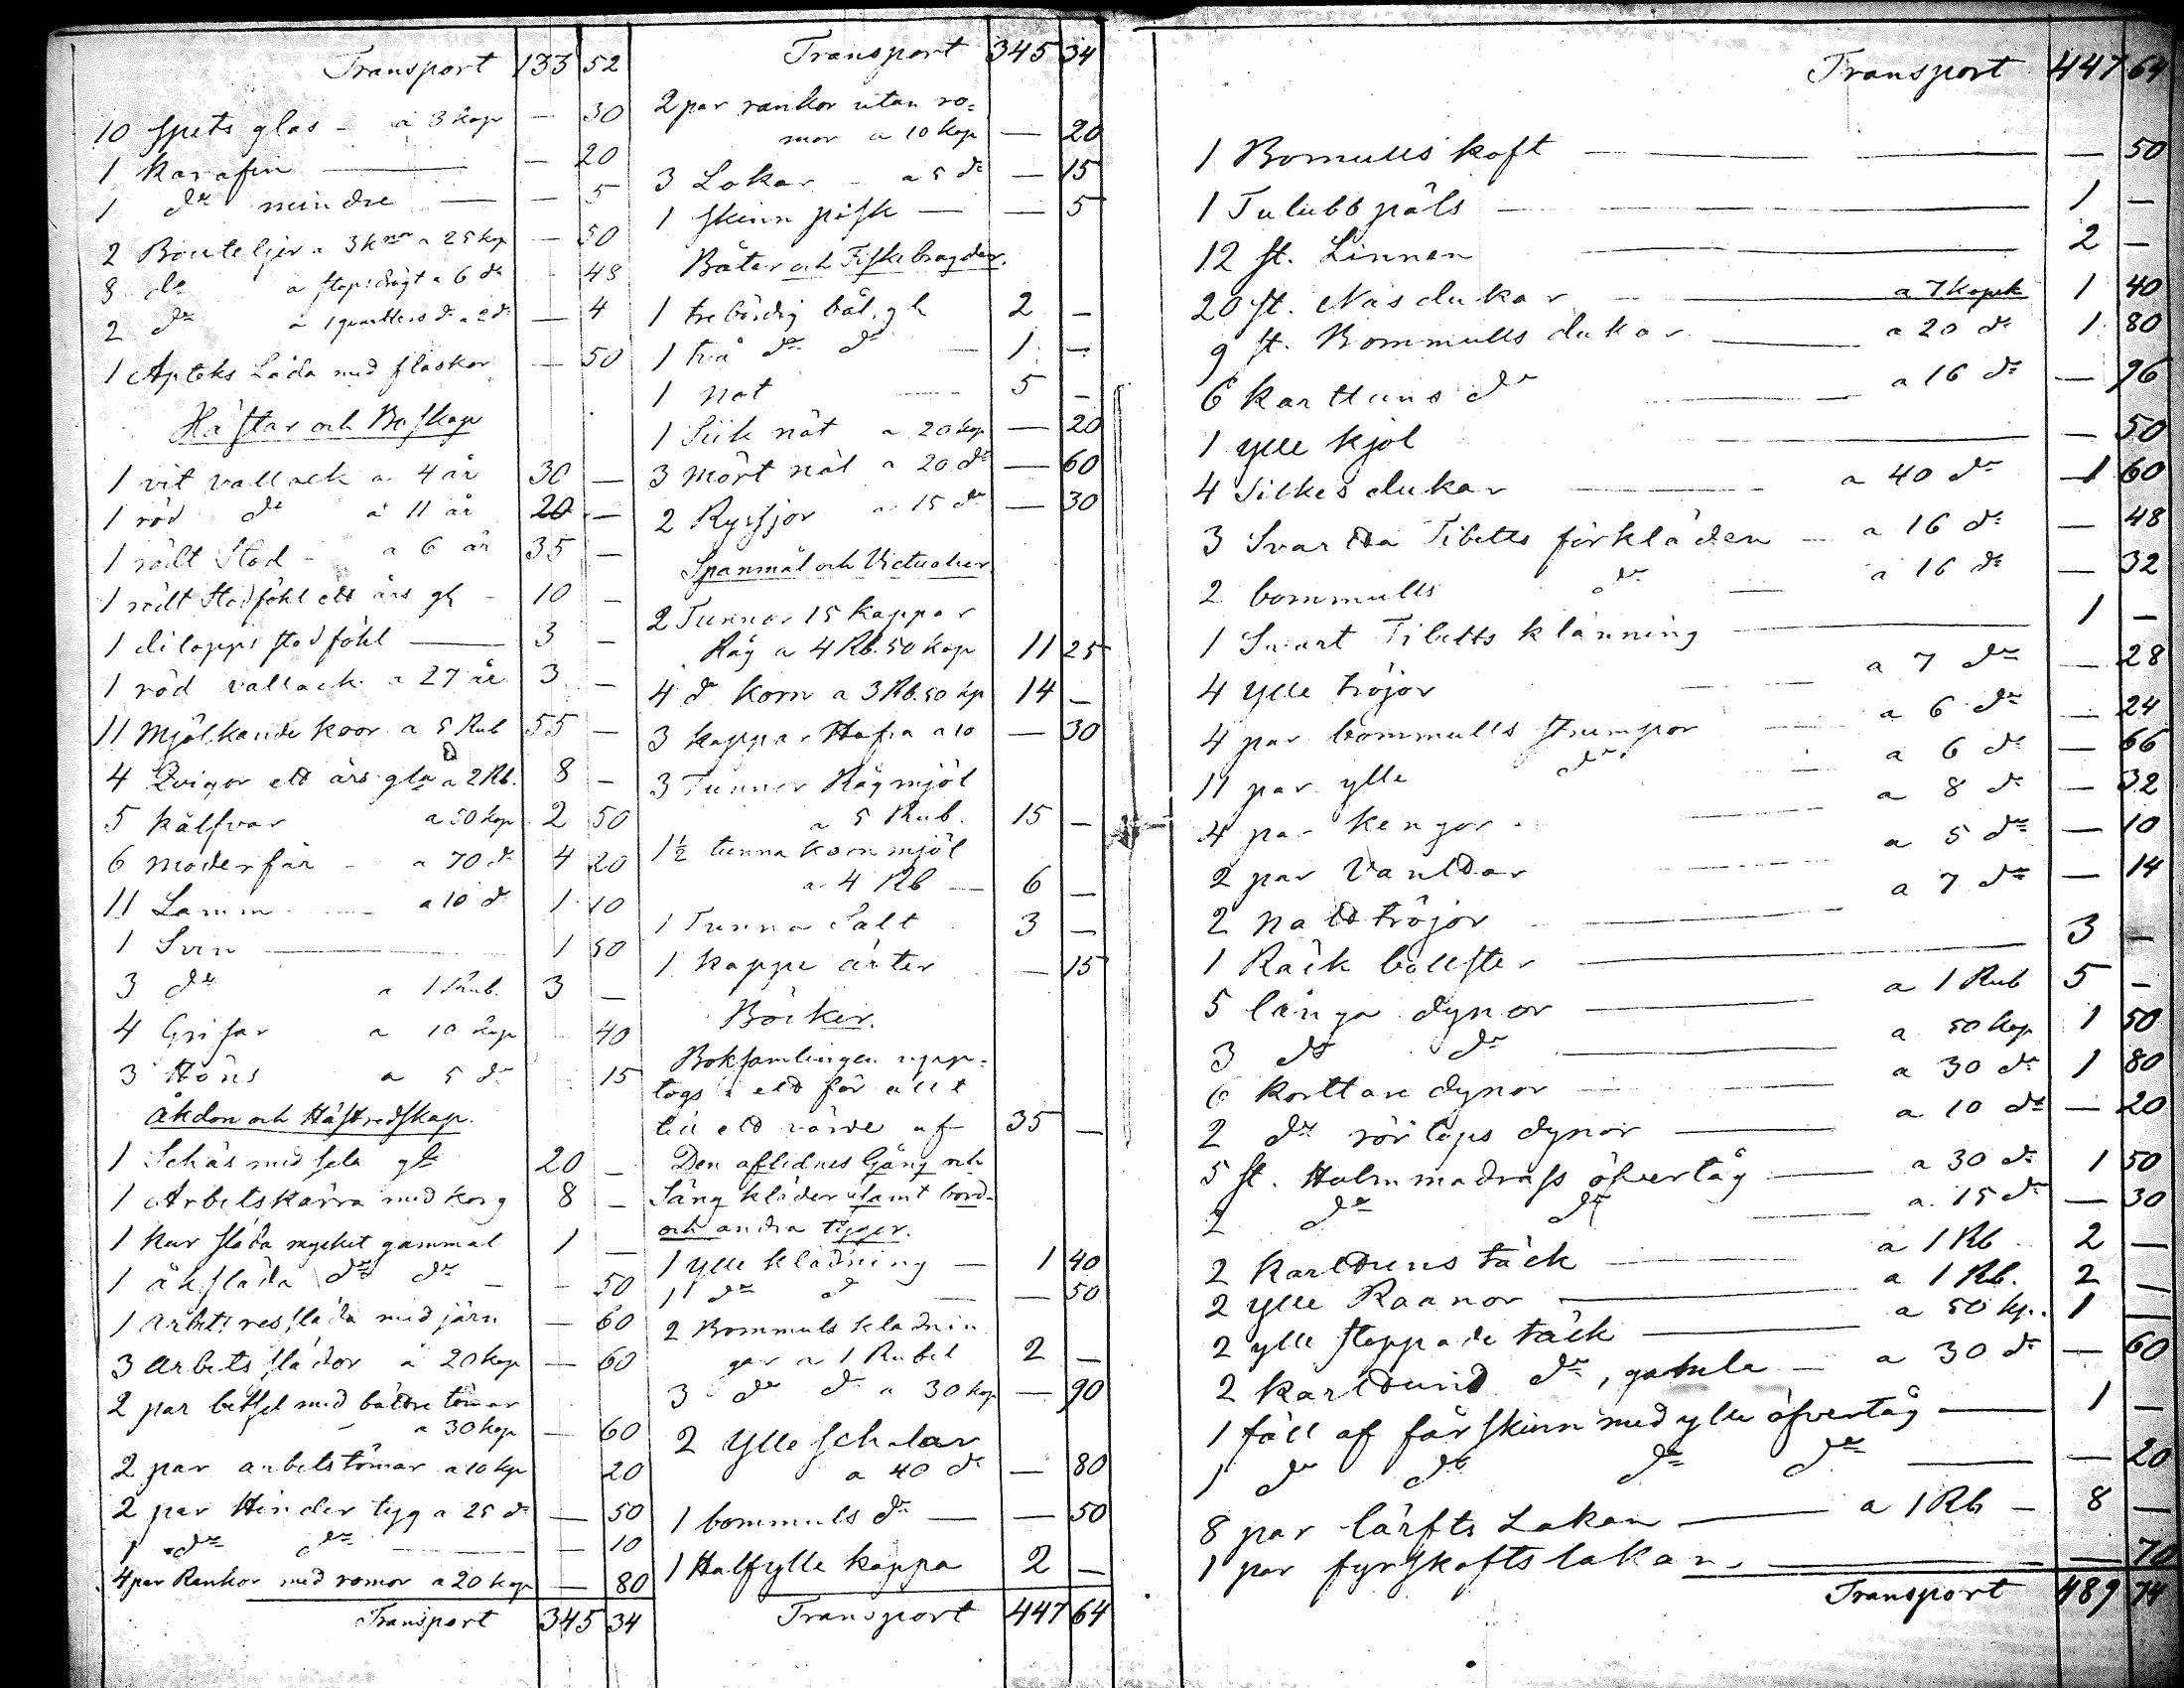 Transport 133 52
10 spets glas - a 3 kop — 30
1 karafin — — 20
1 do mindre — — 5
2 Bouteljer a 3 knor a 25 kop — 50
8 do a stops drygt a 6 do 48
2 do a 1 quarters do a 2 do — 4
1 Apteks Låda med flaskor — 50
Hästar och Boskap
1 vit vallack a 4 år 30 —
1 röd do a 11 år 20 —
1 rödt Stod - a 6 år 35 —
1 rödt Stodföhl ett års gl - 10 —
1 dilopps stodföhl — 3 —
1 röd vallack a 27 år 3 —
11 Mjölkande koor a 5 Rub 55 —
4 Qvigor ett års gla a 2 Rb. 8 —
5 kalfvar a 50 kop 2 50
6 moderfår - a 70 do 4 20
11 Lamm — a 10 do 1 10
1 Svin — 1 50
3 do a 1 Rub. 3 —
4 Grisar a 10 kop 40
3 Höns a 5 do 15
Åkdon och Hästredskap.
1 Schäs med sela gl 20 —
1 Arbetskärra med korg 8 —
1 kur släda mycket gammal 1 —
1 åksläda do do - - 50
1 arbets resslāda med järn — 60
3 arbets slädor a 20 kop — 60
2 par betsel med bättre tömar
a 30 kop — 60
2 par arbetstömar a 10 kop 20
2 par Hinder tyg a 25 do — 50
1 do do — — 10
4 par Rankor med romor a 20 kop — 80
Transport 345 34
Transport 345 34
2 par rankor utan ro=
mor a 10 kop — 20
3 Lokar - a 5 do — 15
1 skinn påsk — — 5
Båtar och Fiskebragder.
1 trebördig båt, gl 2 —
1 två do do — 1 —
1 not — 5 —
1 Siik nät a 20 kop — 20
3 mört nät a 20 do — 60
2 Ryssjor a 15 do — 30
Spanmål och Victualier
2 Tunnor 15 kappar
Råg a 4 Rb. 50 kop 11 25
4 do korn a 3 Rb. 50 kp 14 —
3 kappar Hafra a 10 — 30
3 Tunnor Rågmjöl
a 5 Rub. 15 —
1½ tunna kornmjöl
a 4 Rb — 6 —
1 Tunna Salt 3 —
1 kappe ärter — 15
Böcker.
Boksamlingen upp=
togs i ett för allt
till ett värde af 35 —
Den aflidnes Gång och
Säng kläder samt bord-
och andra tyger.
1 ylle klädning — 1 40
1 do d — — 50
2 Bommuls klädnin
gar a 1 Rubel 2 —
3 do do a 30 kop — 90
2 Ylle schalar
a 40 do — 80
1 bommuls do — — 50
1 Halfylle kappa 2 —
Transport 447 64
Transport 447 64
1 Bomulls koft — — — 50
1 Tulubb päls — — 1 —
12 st. Linnen — 2 —
20 st. Näsdukar — a 7 kopek 1 40
9 st. Bommulls dukar — a 20 do 1 80
6 karttuns do — a 16 do — 96
1 ylle kjol — — 50
4 Silkes dukar — a 40 do 1 60
3 Svartta Tibetts förkläden - a 16 do — 48
2 bommulls do — a 16 do — 32
1 Svart Tibetts klänning — 1 —
4 ylle tröjor — a 7 do — 28
4 par bommulls strumpor — a 6 do — 24
11 par ylle do - a 6 do — 66
4 par kengor - — a 8 do — 32
2 par Vanttar — a 5 do — 10
2 natttröjor — a 7 do — 14
1 Räck bollster — 3 —
5 långa dynor — a 1 Rub 5 —
3 do do — a 50 kop 1 50
6 korttare dynor — a 30 do 1 80
2 do rörtops dynor — a 10 do — 20
5 st. Halm madrass öfvertåg — a 30 do 1 50
2 do do — a 15 do — 30
2 karttuns täck — a 1 Rb 2 —
2 ylle Raanor — a 1 Rb. 2 —
2 ylle stoppade täck — a 50 kp. 1 —
2 karttuns do, gamla - a 30 do — 60
1 fäll af fårskinn med ylle öfvertåg — 1 —
1 do do do do — — 20
8 par lärfts Lakan — a 1 Rb - 8 —
1 par fyrskafts lakan. — — 70
Transport 489 74